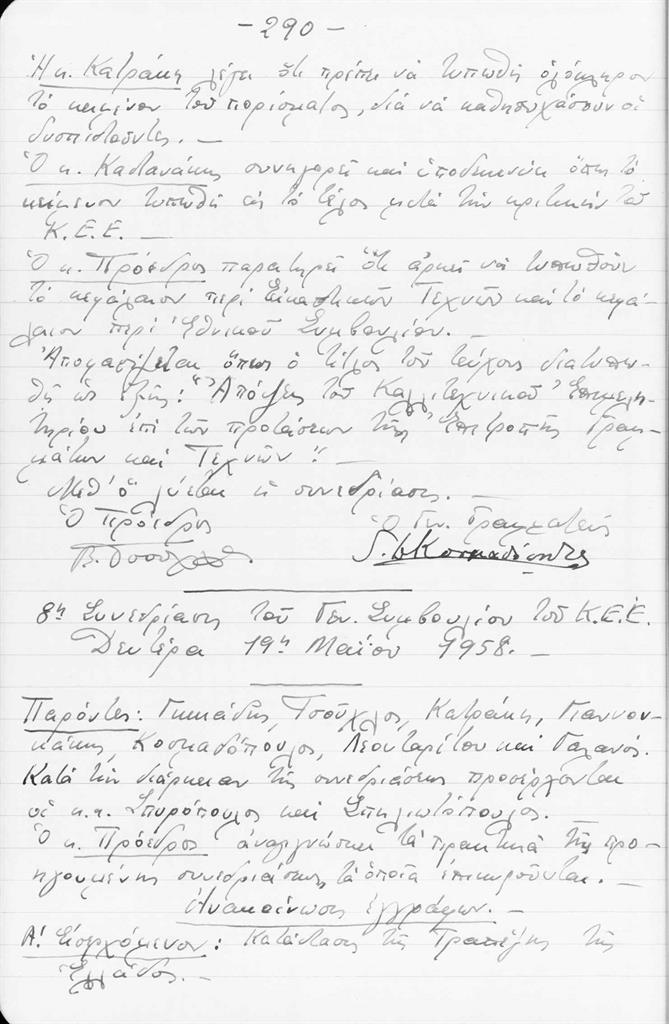 - 290 -
Ἡ κ. Κατράκη λέγει ὅτι πρέπει νὰ τυπωθῇ ὁλόκληρον
τὸ κείμενον τοῦ πορίσματος, διὰ νὰ καθησυχάσουν οἱ
δυσπιστοῦντες. —
Ὁ κ. Καστανάκης συνηγορεῖ καὶ ὑποδεικνύει ὅπως τὸ
κείμενον τυπωθῇ εἰς τὸ τέλος μετὰ τὴν κριτικὴν τοῦ
Κ.Ε.Ε. —
Ὁ κ. Πρόεδρος παρατηρεῖ ὅτι ἀρκεῖ νὰ τυπωθοῦν
τὸ κεφάλαιον περὶ Εἰκαστικῶν Τεχνῶν καὶ τὸ κεφά-
λαιον περὶ Ἐθνικοῦ Συμβουλίου. —
Ἀποφασίζεται ὅπως ὁ τίτλος τοῦ τεύχους διατυπω-
θῇ ὡς ἑξῆς: "Ἀπόψεις τοῦ Καλλιτεχνικοῦ Ἐπιμελη-
τηρίου ἐπὶ τῶν προτάσεων τῆς Ἐπιτροπῆς Γραμ-
μάτων καὶ Τεχνῶν". —
Μεθ' ὃ λύεται ἡ συνεδρίασις. —
Ὁ Πρόεδρος Ὁ Γεν. Γραμματεύς
8η Συνεδρίασις τοῦ Γεν. Συμβουλίου τοῦ Κ.Ε.Ε.
Δευτέρα 19η Μαΐου 1958. —
Παρόντες: Γκικάδης, Τσοῦχλος, Κατράκη, Γιαννου-
κάκης, Κοσμαδόπουλος, Λεονταρίτου καὶ Γαλανός.
Κατὰ τὴν διάρκειαν τῆς συνεδριάσεως προσέρχονται
οἱ κ.κ. Σπυρόπουλος καὶ Σπηλιωτόπουλος.
Ὁ κ. Πρόεδρος ἀναγινώσκει τὰ πρακτικὰ τῆς προ-
ηγουμένης συνεδριάσεως τὰ ὁποῖα ἐπικυροῦνται. —
Ἀνακοίνωσις ἐγγράφων. —
Α! Εἰσερχόμενον: Κατάστασις τῆς Τραπέζης τῆς
Ἑλλάδος. —